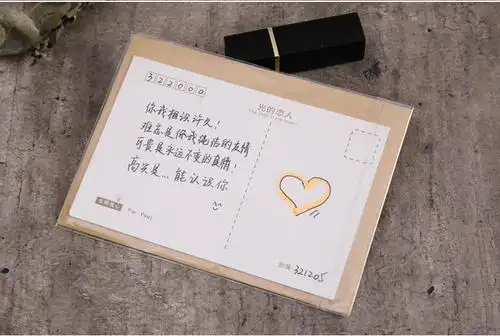 322000
光的恋人
你我相识许久!
难忘是你我纯洁的友情
可贵是永远不变的真情!
高兴是...能认识你
For You!
邮编:321205